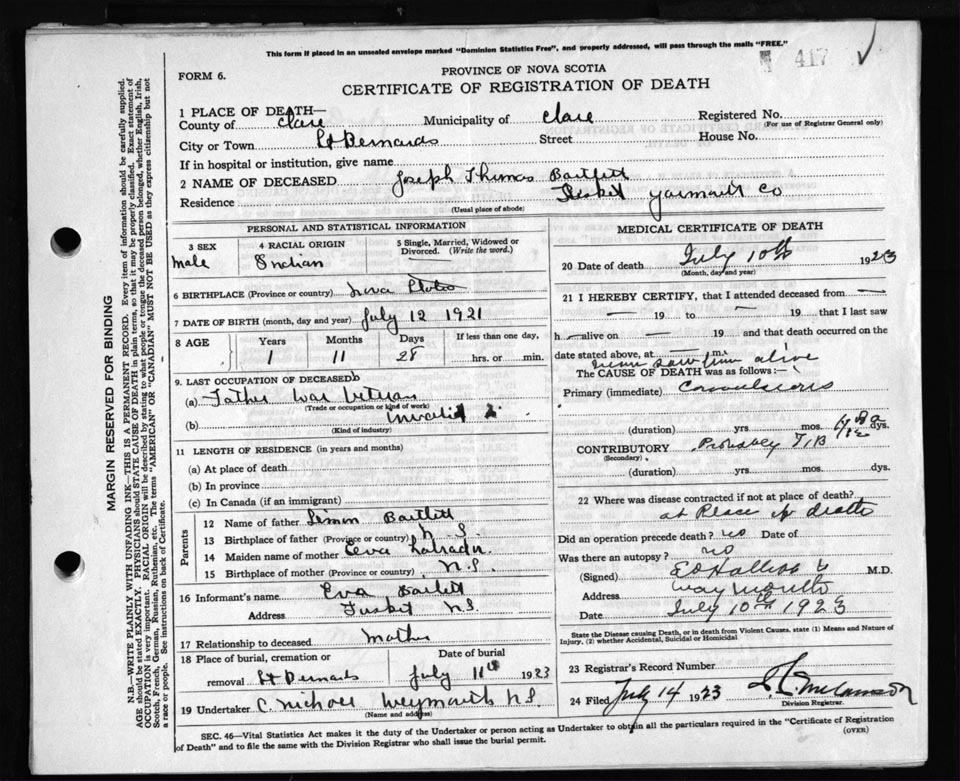 This form if placed in an unsealed envelope marked "Dominion Statistics Free", and properly addressed, will pass through the mails "FREE."
417
FORM 6.
PROVINCE OF NOVA SCOTIA
CERTIFICATE OF REGISTRATION OF DEATH
1 PLACE OF DEATH—
County of Clare Municipality of Clare Registered No.
(For use of Registrar General only)
City or Town St Bernards Street House No.
If in hospital or institution, give name
2 NAME OF DECEASED Joseph Thomas Bartlett
Residence Tusket Yarmouth Co
(Usual place of abode)
PERSONAL AND STATISTICAL INFORMATION
3 SEX 4 RACIAL ORIGIN 5 Single, Married, Widowed or Divorced. (Write the word.)
Male Indian
6 BIRTHPLACE (Province or country) Nova Scotia
7 DATE OF BIRTH (month, day and year) July 12 1921
8 AGE Years Months Days If less than one day,
1 11 28 hrs. or min.
9. LAST OCCUPATION OF DECEASED
(a) Father War Veteran
(Trade or occupation or kind of work)
(b) Invalid
(Kind of industry)
11 LENGTH OF RESIDENCE (in years and months)
(a) At place of death
(b) In province
(c) In Canada (if an immigrant)
Parents
12 Name of father Simon Bartlett
13 Birthplace of father (Province or country) N.S.
14 Maiden name of mother Eeva
15 Birthplace of mother (Province or country) N.S.
16 Informant's name Eva Bartlett
Address Tusket N.S.
17 Relationship to deceased Mother
18 Place of burial, cremation or removal St Bernards
Date of burial July 11th 1923
19 Undertaker C. Nichols Weymouth N.S.
(Name and address)
MEDICAL CERTIFICATE OF DEATH
20 Date of death July 10th 1923
(Month, day and year)
21 I HEREBY CERTIFY, that I attended deceased from —
— 19 to — 19 that I last saw
h alive on — 19 and that death occurred on the
date stated above, at — m.
never saw him alive
The CAUSE OF DEATH was as follows:—
Primary (immediate) Convulsions
(duration) yrs. mos. dys.
CONTRIBUTORY Probably TB
(Secondary)
(duration) yrs. mos. dys.
22 Where was disease contracted if not at place of death?
at Place of death
Did an operation precede death? no Date of
Was there an autopsy? no
(Signed) M.D.
Address Weymouth
Date July 10th 1923
State the Disease causing Death, or in death from Violent Causes, state (1) Means and Nature of Injury, (2) whether Accidental, Suicidal or Homicidal
23 Registrar's Record Number
24 Filed July 14 1923
Division Registrar.
SEC. 46—Vital Statistics Act makes it the duty of the Undertaker or person acting as Undertaker to obtain all the particulars required in the "Certificate of Registration
of Death" and to file the same with the Division Registrar who shall issue the burial permit.
(OVER)
MARGIN RESERVED FOR BINDING
N.B.—WRITE PLAINLY WITH UNFADING INK—THIS IS A PERMANENT RECORD. Every item of information should be carefully supplied.
AGE should be stated EXACTLY. PHYSICIANS should STATE CAUSE OF DEATH in plain terms, so that it may be properly classified. Exact statement of
OCCUPATION is very important. RACIAL ORIGIN will be described by stating to what people or tongue the deceased person belonged, whether English, Irish,
Scotch, French, German, Russian, Ruthenian, etc. The terms "AMERICAN" OR "CANADIAN" MUST NOT BE USED as they express citizenship but not
a race or people. See instructions on back of Certificate.